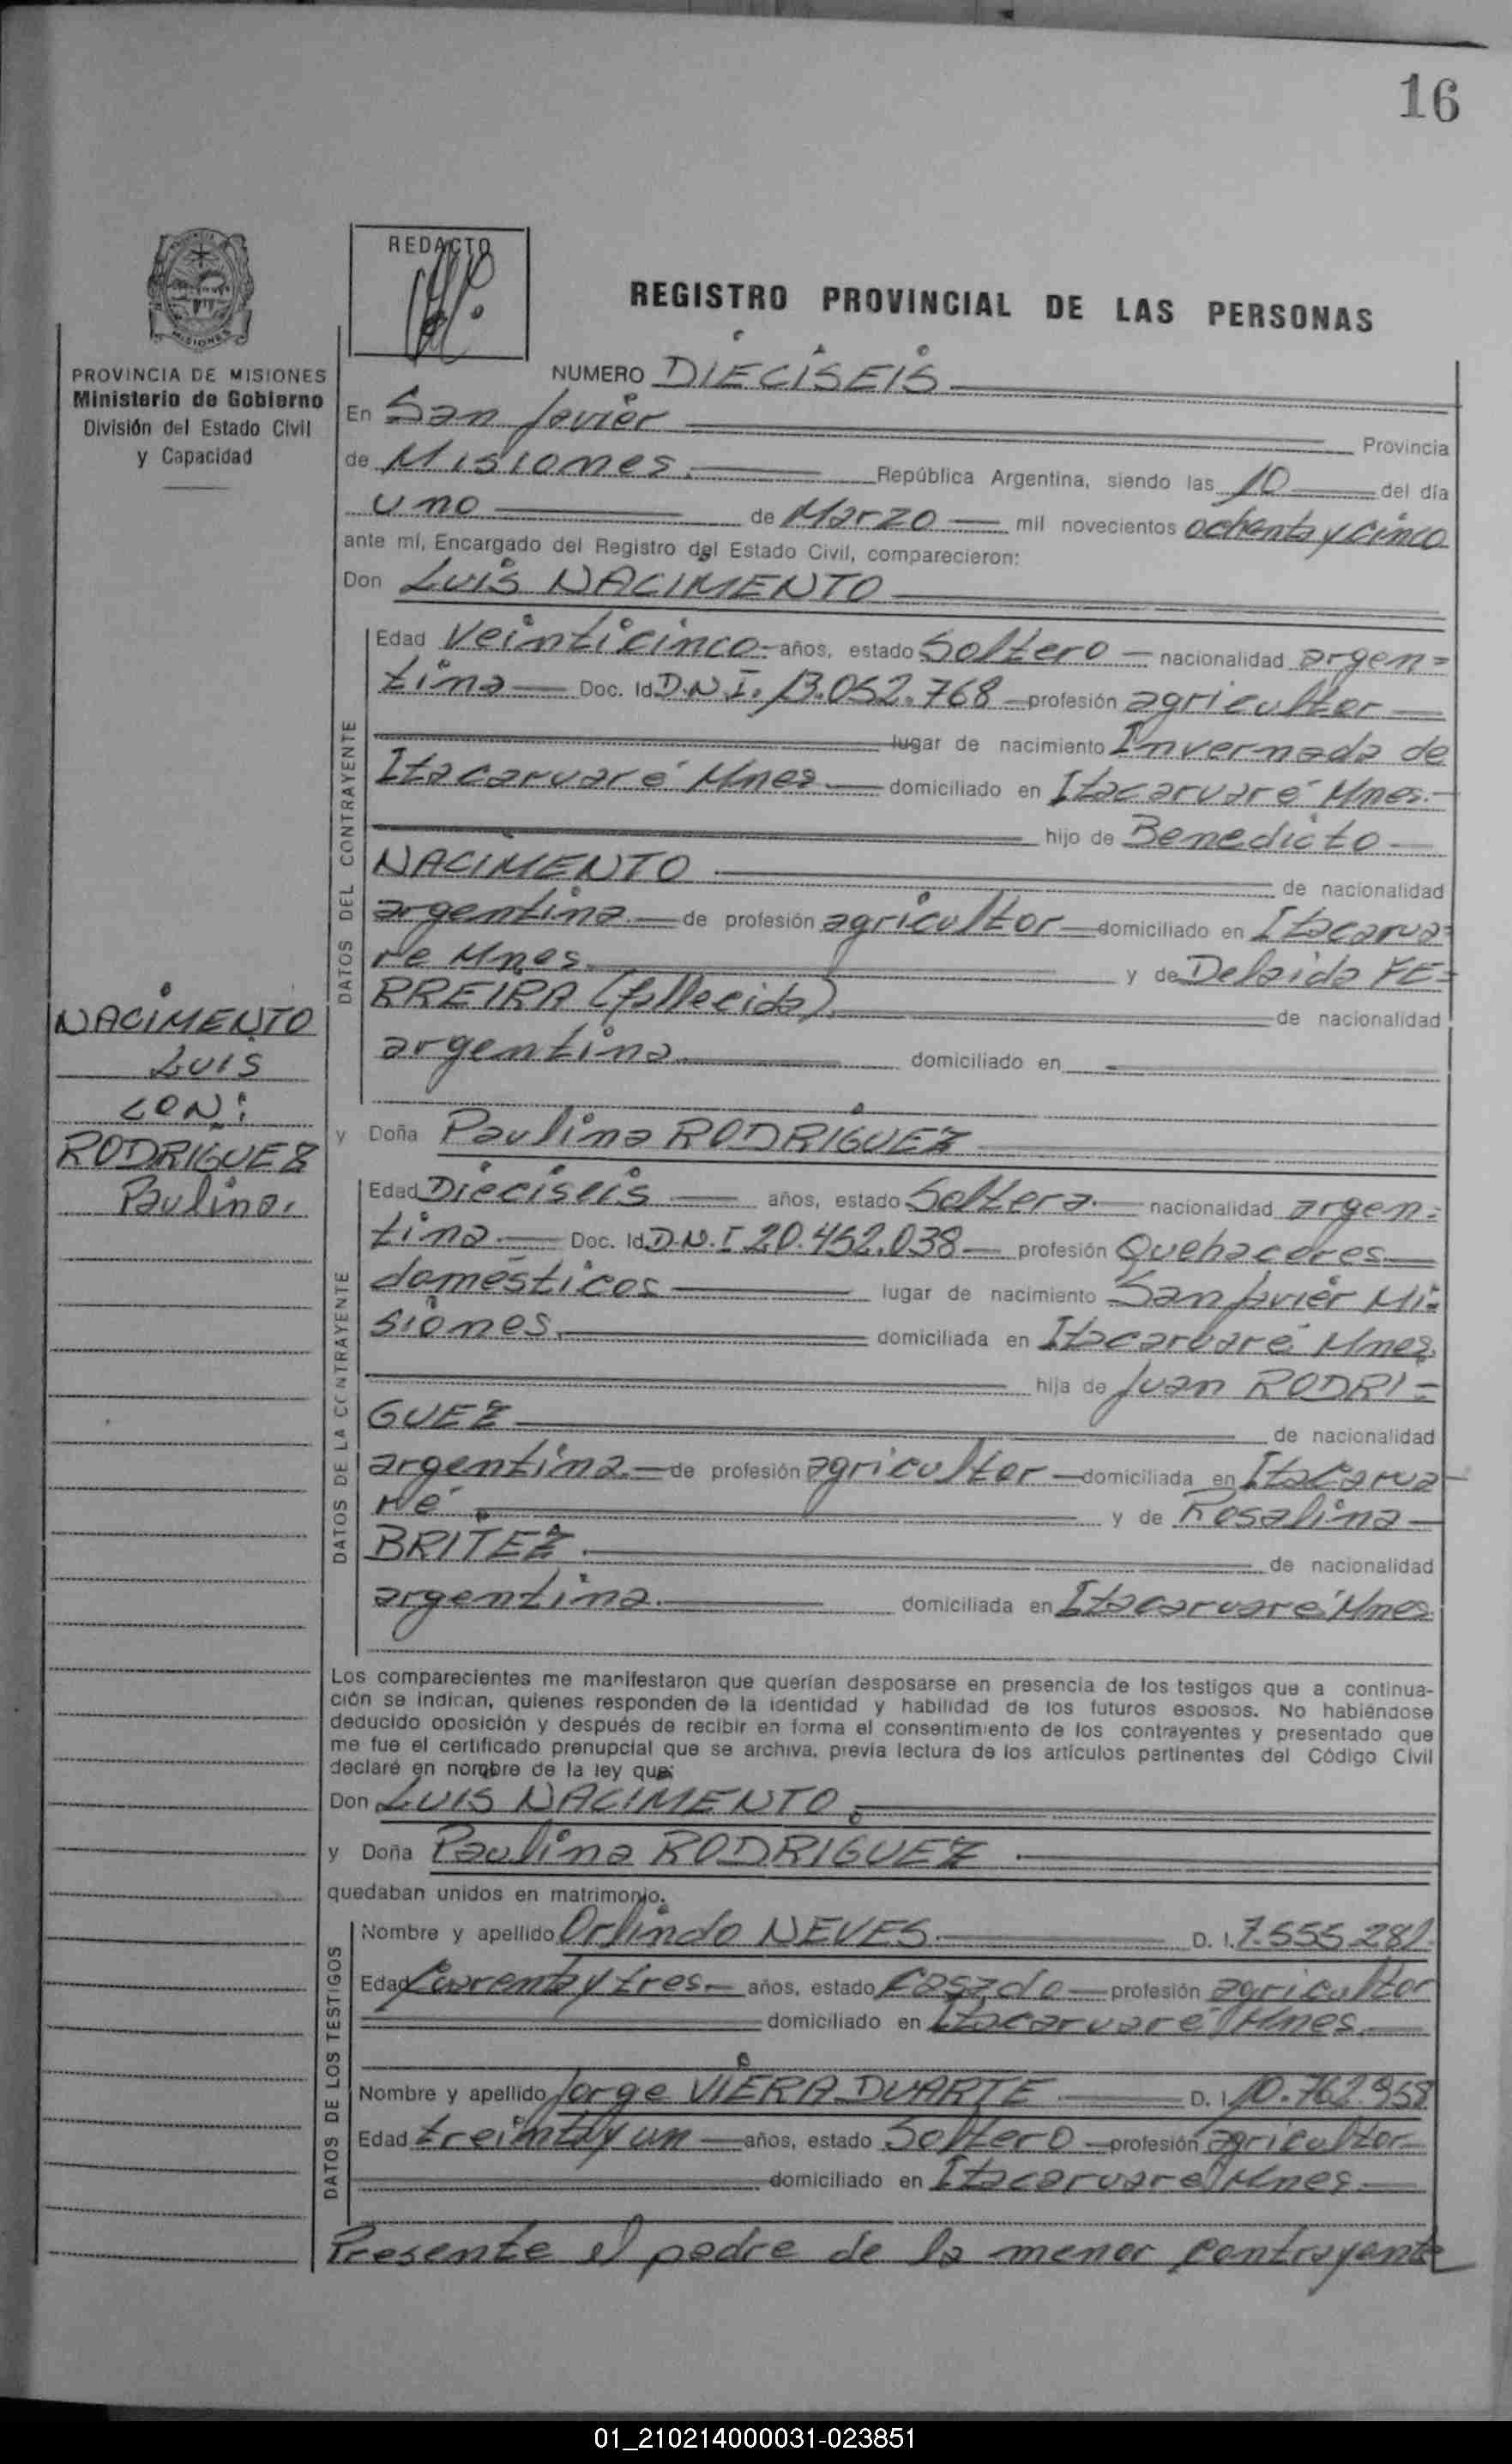 16
REDACTO
REGISTRO PROVINCIAL DE LAS PERSONAS
PROVINCIA DE MISIONES
Ministerio de Gobierno
División del Estado Civil
y Capacidad
NUMERO DIECISEIS
En San Javier Provincia
de Misiones. República Argentina, siendo las 10 del día
uno de Marzo mil novecientos ochenta y cinco
ante mí, Encargado del Registro del Estado Civil, comparecieron:
Don Luis NACIMENTO
DATOS DEL CONTRAYENTE
Edad Veinticinco años, estado Soltero nacionalidad argen=
tina Doc. Id D.N.I. 13.052.768 profesión agricultor
lugar de nacimiento Invernada de
Itacaruaré Mnes domiciliado en Itacaruaré Mnes.
hijo de Benedicto
NACIMENTO de nacionalidad
argentina. de profesión agricultor domiciliado en Itacarua=
re Mnes. y de Delaida FE=
RREIRA (fallecida) de nacionalidad
argentina domiciliado en
NACIMENTO
LUIS
CON:
RODRIGUEZ
Paulina.
y Doña Paulina RODRIGUEZ
DATOS DE LA CONTRAYENTE
Edad Dieciseis años, estado Soltera. nacionalidad argen=
tina. Doc. Id D.N.I 20.452.038 profesión Quehaceres
domésticos lugar de nacimiento San Javier Mi=
siones. domiciliada en Itacaruaré Mnes.
hija de Juan RODRI=
GUEZ de nacionalidad
argentina. de profesión agricultor domiciliada en Itacarua
ré y de Rosalina
BRITEZ de nacionalidad
argentina. domiciliada en Itacaruaré Mnes
Los comparecientes me manifestaron que querían desposarse en presencia de los testigos que a continua-
ción se indican, quienes responden de la identidad y habilidad de los futuros esposos. No habiéndose
deducido oposición y después de recibir en forma el consentimiento de los contrayentes y presentado que
me fue el certificado prenupcial que se archiva, previa lectura de los artículos pertinentes del Código Civil
declaré en nombre de la ley que:
Don LUIS NACIMENTO
y Doña Paulina RODRIGUEZ
quedaban unidos en matrimonio.
DATOS DE LOS TESTIGOS
Nombre y apellido Orlindo NEVES D. I. 7.555.281.
Edad Cuarenta y tres años, estado Casado profesión agricultor
domiciliado en Itacaruaré Mnes.
Nombre y apellido Jorge VIERA DUARTE D. I. 10.762.958
Edad treinta y un años, estado Soltero profesión agricultor
domiciliado en Itacaruaré Mnes.
Presente el padre de la menor contrayente
01_210214000031-023851